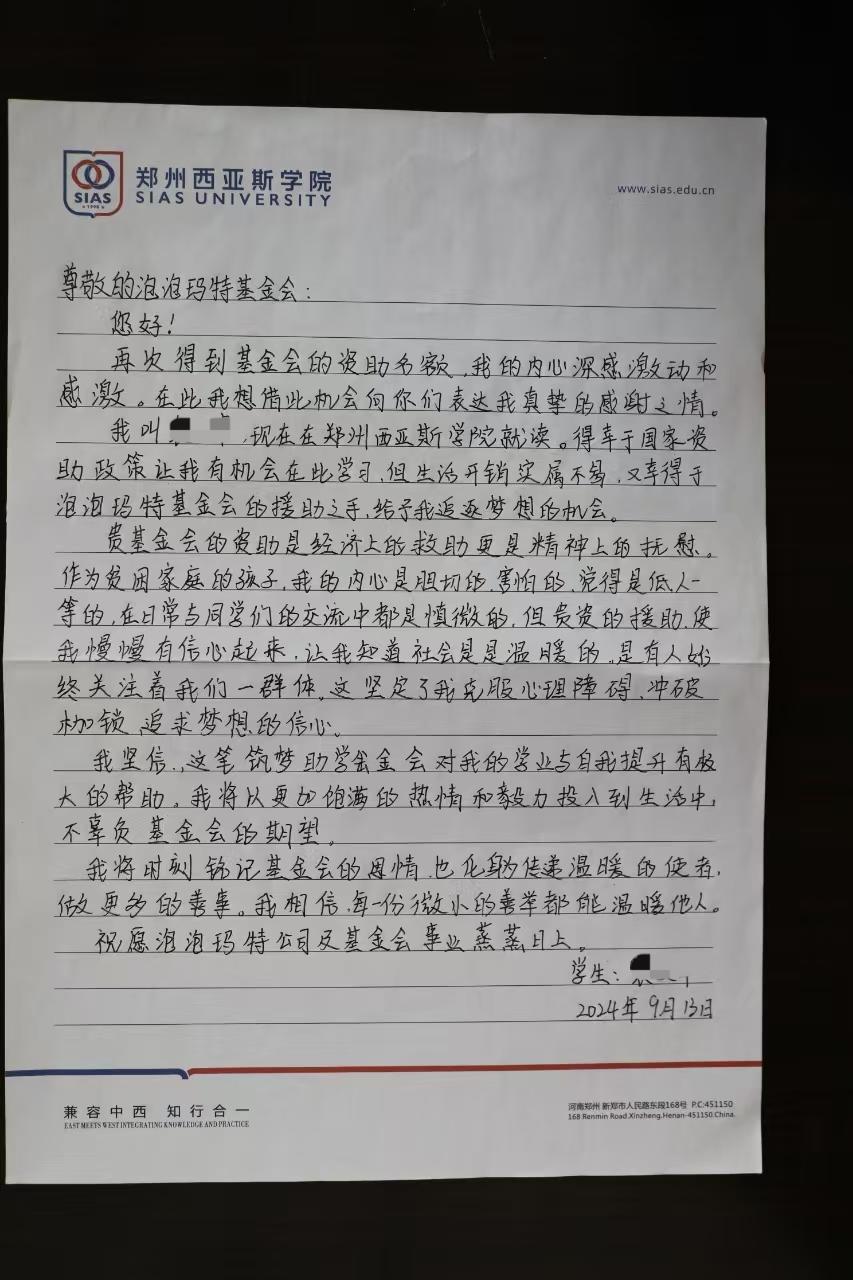 SIAS
1998
郑州西亚斯学院
SIAS UNIVERSITY
www.sias.edu.cn
尊敬的泡泡玛特基金会：
您好！
再次得到基金会的资助名额，我的内心深感激动和
感激。在此我想借此机会向你们表达我真挚的感谢之情。
我叫 ，现在在郑州西亚斯学院就读。得幸于国家资
助政策让我有机会在此学习，但生活开销实属不易，又幸得于
泡泡玛特基金会的援助之手，给予我追逐梦想的机会。
贵基金会的资助是经济上的救助更是精神上的抚慰。
作为贫困家庭的孩子，我的内心是胆切的，害怕的，觉得是低人一
等的，在日常与同学们的交流中都是慎微的，但贵资的援助，使
我慢慢有信心起来，让我知道社会是是温暖的，是有人始
终关注着我们一群体。这坚定了我克服心理障碍、冲破
枷锁 追求梦想的信心。
我坚信，这笔筑梦助学金会对我的学业与自我提升有极
大的帮助。我将以更加饱满的热情和毅力投入到生活中，
不辜负基金会的期望。
我将时刻铭记基金会的恩情，也化身为传递温暖的使者，
做更多的善事。我相信，每一份微小的善举都能温暖他人。
祝愿泡泡玛特公司及基金会事业蒸蒸日上。
学生：
2024年9月13日
兼容中西 知行合一
EAST MEETS WEST INTEGRATING KNOWLEDGE AND PRACTICE
河南郑州 新郑市人民路东段168号 P.C:451150
168 Renmin Road.Xinzheng.Henan-451150.China.